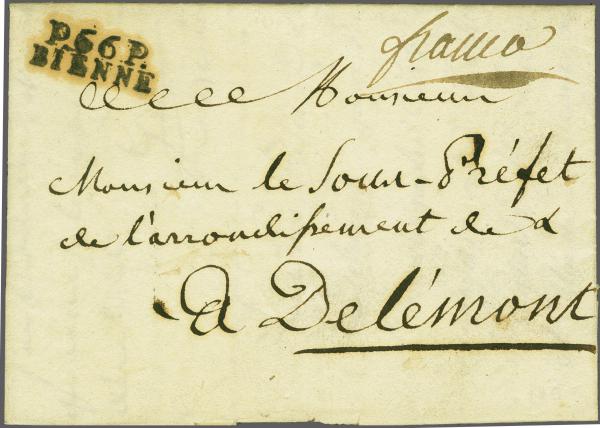 P.66.P.
BIENNE
franco
Monsieur
Monsieur le Sous-Préfet
de l'arrondissement de &
A Delémont